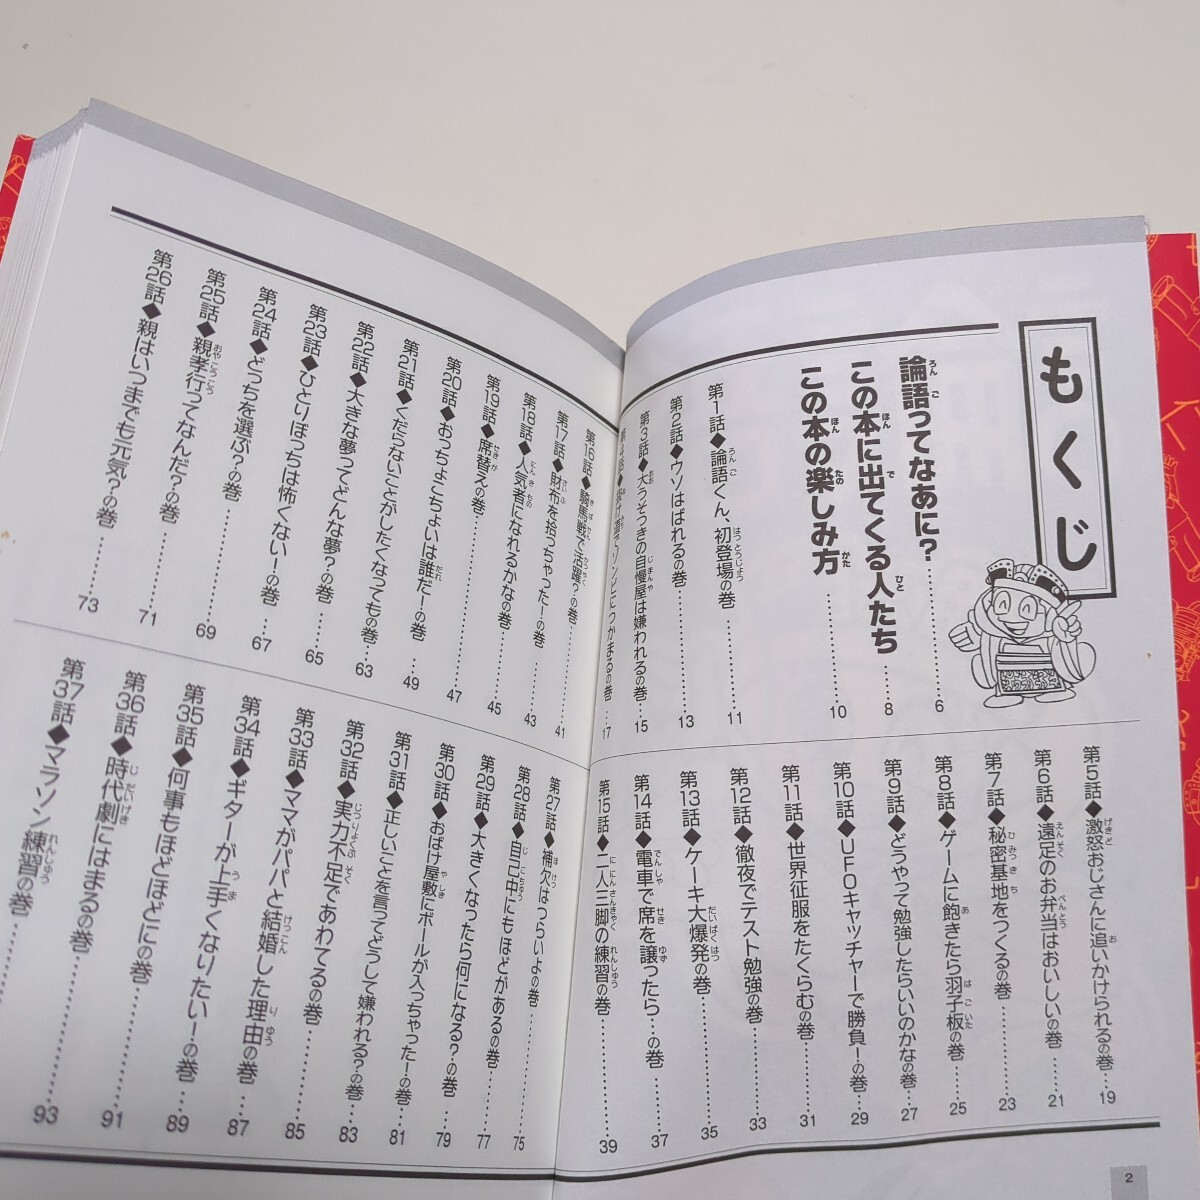 もくじ
論語ってなあに？……6
この本に出てくる人たち……8
この本の楽しみ方……10
第1話◆論語くん、初登場の巻……11
第2話◆ウソはばれるの巻……13
第3話◆大うそつきの自慢屋は嫌われるの巻……15
つかまるの巻……17
第5話◆激怒おじさんに追いかけられるの巻……19
第6話◆遠足のお弁当はおいしいの巻……21
第7話◆秘密基地をつくるの巻……23
第8話◆ゲームに飽きたら羽子板の巻……25
第9話◆どうやって勉強したらいいのかなの巻……27
第10話◆UFOキャッチャーで勝負！の巻……29
第11話◆世界征服をたくらむの巻……31
第12話◆徹夜でテスト勉強の巻……33
第13話◆ケーキ大爆発の巻……35
第14話◆電車で席を譲ったら…の巻……37
第15話◆二人三脚の練習の巻……39
2
第16話◆騎馬戦で活躍？の巻……41
第17話◆財布を拾っちゃった！の巻……43
第18話◆人気者になれるかなの巻……45
第19話◆席替えの巻……47
第20話◆おっちょこちょいは誰だ！の巻……49
第21話◆くだらないことがしたくなってもの巻……63
第22話◆大きな夢ってどんな夢？の巻……65
第23話◆ひとりぼっちは怖くない！の巻……67
第24話◆どっちを選ぶ？の巻……69
第25話◆親孝行ってなんだ？の巻……71
第26話◆親はいつまでも元気？の巻……73
第27話◆補欠はつらいよの巻……75
第28話◆自己中にもほどがあるの巻……77
第29話◆大きくなったら何になる？の巻……79
第30話◆おばけ屋敷にボールが入っちゃった！の巻……81
第31話◆正しいことを言ってどうして嫌われる？の巻……83
第32話◆実力不足であわてるの巻……85
第33話◆ママがパパと結婚した理由の巻……87
第34話◆ギターが上手くなりたい！の巻……89
第35話◆何事もほどほどにの巻……91
第36話◆時代劇にはまるの巻……93
第37話◆マラソン練習の巻……